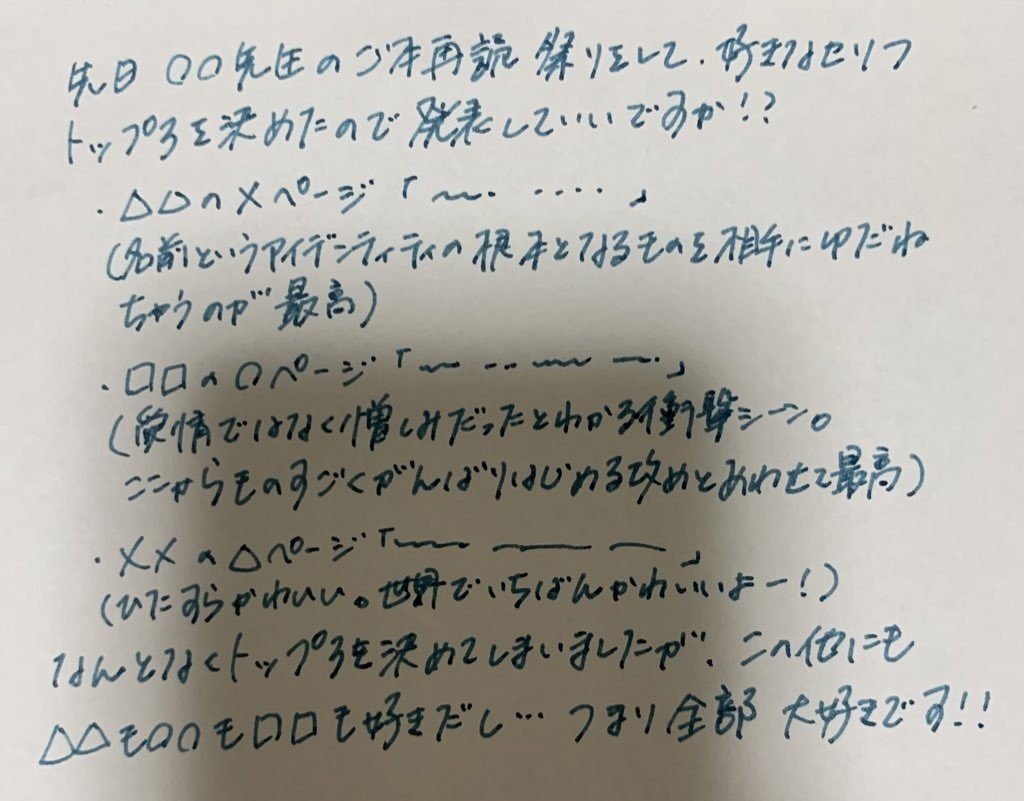 先日 〇〇先生のご本再読祭りをして、好きなセリフ
トップ3を決めたので発表していいですか!?
・△△の×ページ「〜. ‥‥」
(名前というアイデンティティの根本となるものを相手にゆだね
ちゃうのが最高)
・□□の〇ページ「〜 ‥ 〜 ―.」
(愛情ではなく憎しみだったとわかる衝撃シーン。
ここからものすごくがんばりはじめる攻めとあわせて最高)
・××の△ページ「〜 ― ―」
(ひたすらかわいい。世界でいちばんかわいいよー!)
なんとなくトップ3を決めてしまいましたが、この他にも
△△も〇〇も□□も好きだし… つまり全部 大好きです!!